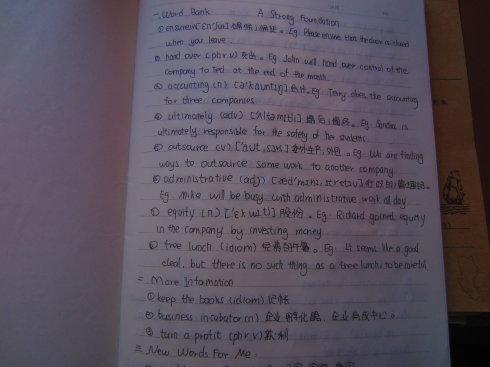 一. Word Bank A Strong Foundation
① ensure(v) [ɪn'ʃuə] 确保; 保证。 Eg. Please ensure that the door is closed
when you leave.
② hand over (phr v) 交出。 Eg. John will hand over control of the
company to Ted at the end of the month.
③ accounting (n) [ə'kauntɪŋ] 会计。 Eg. Terry does the accounting
for three companies.
④ ultimately (adv) 最后; 最终。 Eg. Sandra is
ultimately responsible for the safety of her students.
⑤ outsource (v) ['aut,sɔrs] 外包。 Eg. We are finding
ways to outsource some work to another company.
⑥ administrative (adj) [æd'mɪnɪ,stretɪv] 行政的; 管理的。
Eg. Mike will be busy with administrative work all day
⑦ equity (n) ['ɛkwɪtɪ] 股份。 Eg. Richard gained equity
in the company by investing money
⑧ free lunch (idiom) 免费的午餐。 Eg. It seems like a good
deal, but there is no such thing as a free lunch, so be careful
二. More Information
① keep the books (idiom) 记帐
② business incubator (n) 企业孵化器, 企业育成中心。
③ turn a profit (phr v) 获利
三. New Words For Me: